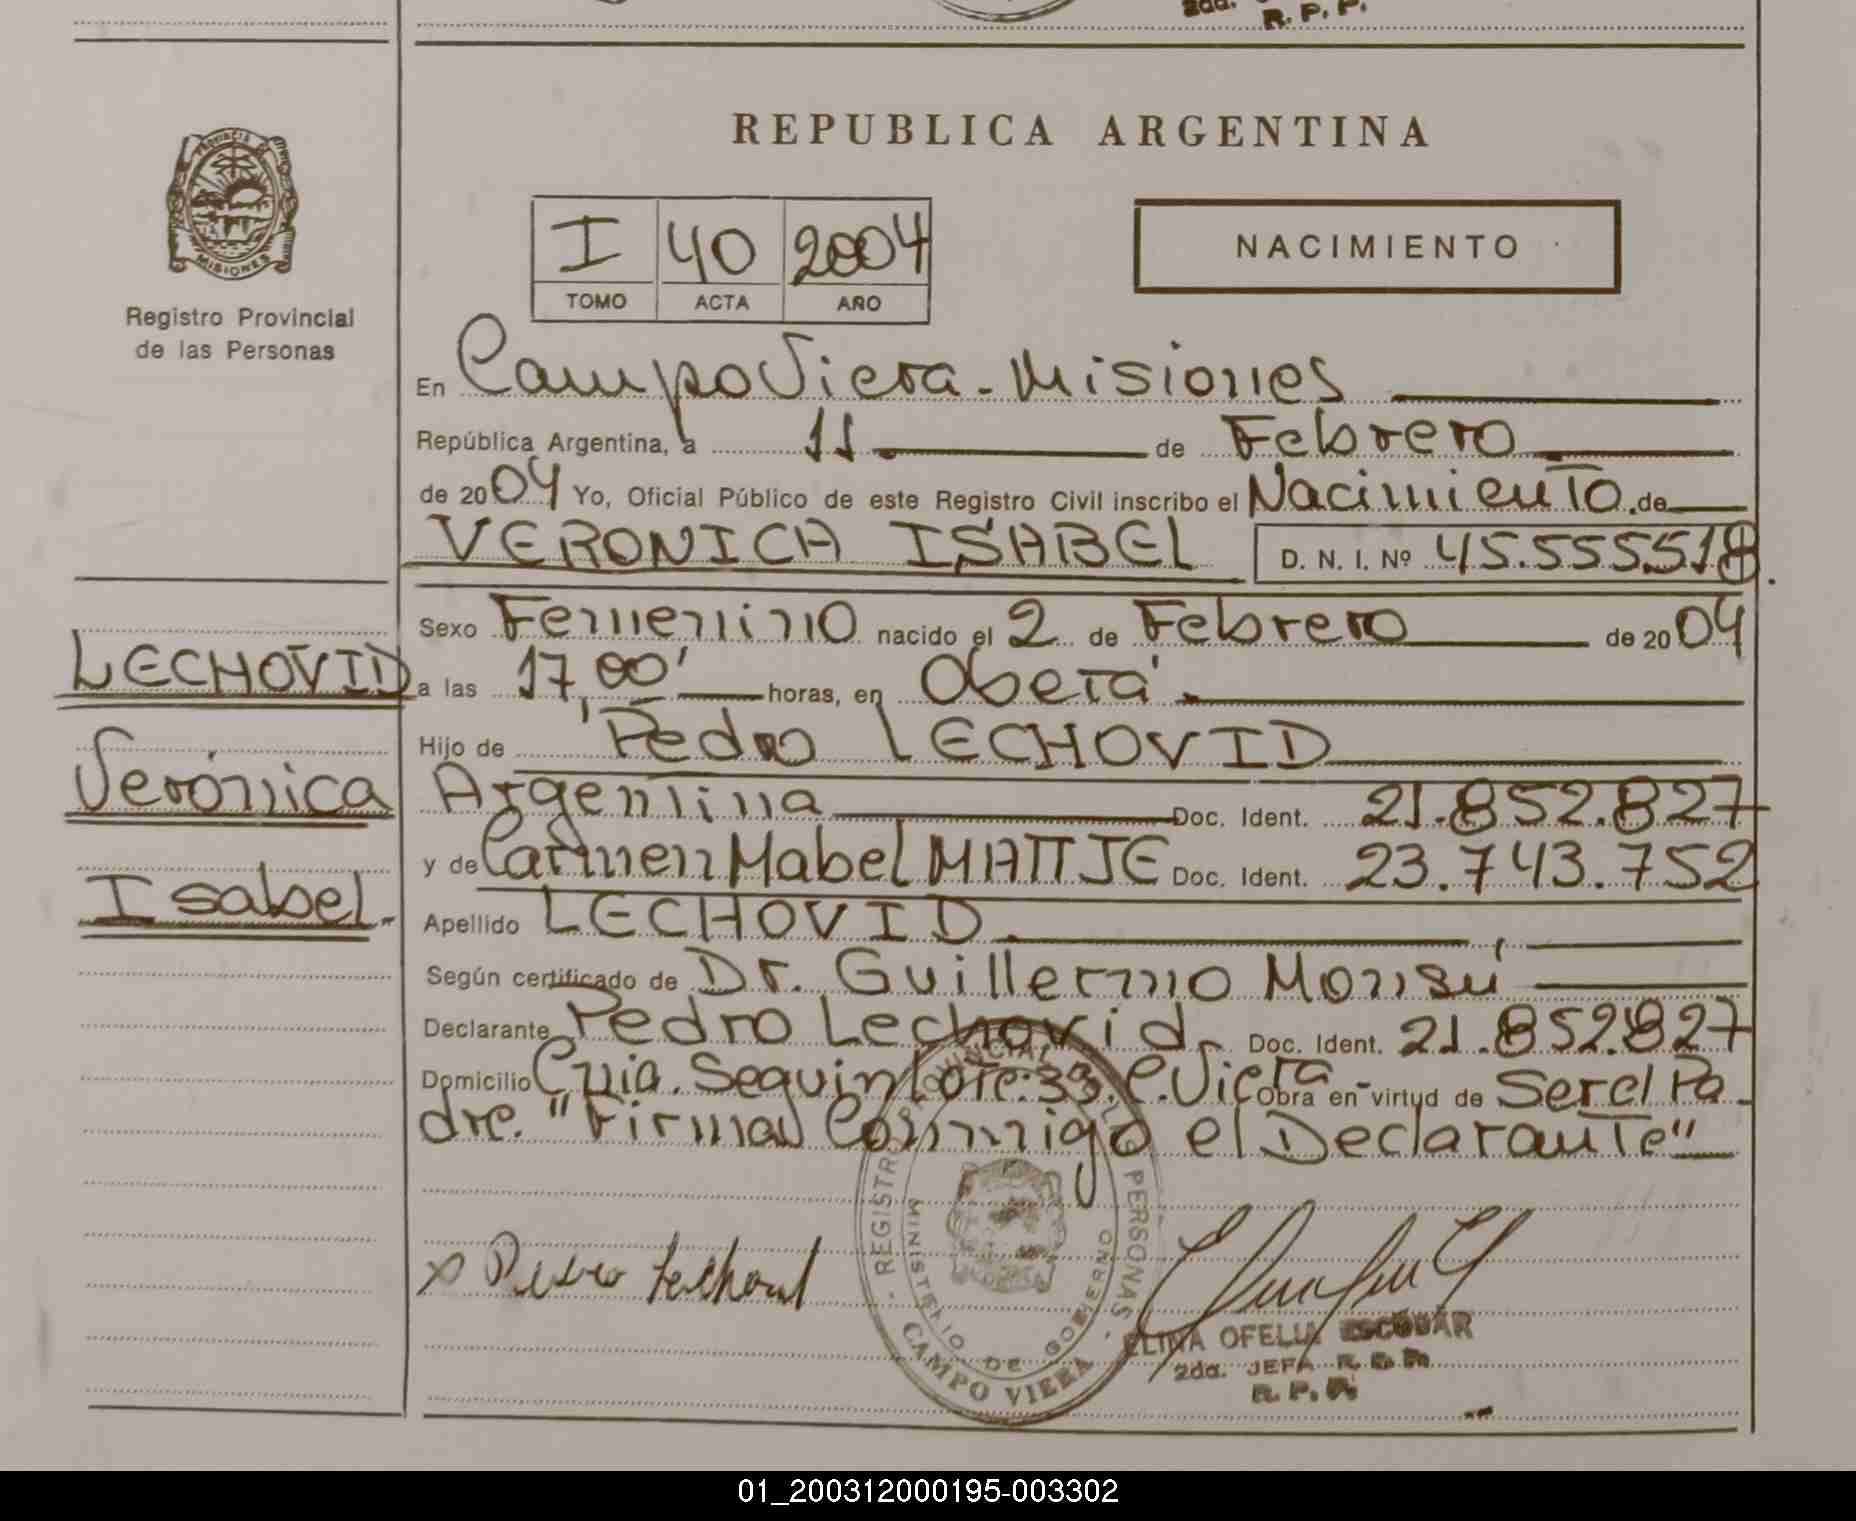 2da.
R. P. P.
PROVINCIA DE
MISIONES
Registro Provincial
de las Personas
REPUBLICA ARGENTINA
I 40 2004
TOMO ACTA AÑO
NACIMIENTO
En Campo Viera - Misiones
República Argentina, a 11 de Febrero
de 2004 Yo, Oficial Público de este Registro Civil inscribo el Nacimiento de
VERONICA ISABEL D. N. I. Nº 45.555.518.
Sexo Femenino nacido el 2 de Febrero de 2004
a las 17,00' horas, en Oberá.
Hijo de Pedro LECHOVID
Argentina Doc. Ident. 21.852.827
y de Carmen Mabel MATTJE Doc. Ident. 23.743.752
Apellido LECHOVID.
Según certificado de Dr. Guillermo Monsú
Declarante Pedro Lechovid Doc. Ident. 21.852.827
Domicilio Cnia. Seguin Lote: 33. C. Viera - Obra en virtud de Ser el Pa-
dre. "Firma Conmigo el Declarante"
LECHOVID
Verónica
Isabel.
x Pedro Lechovid
REGISTRO PROVINCIAL DE LAS PERSONAS
MINISTERIO DE GOBIERNO
CAMPO VIERA
ELINA OFELIA ESCOBAR
2da. JEFA
R. P. P.
01_200312000195-003302